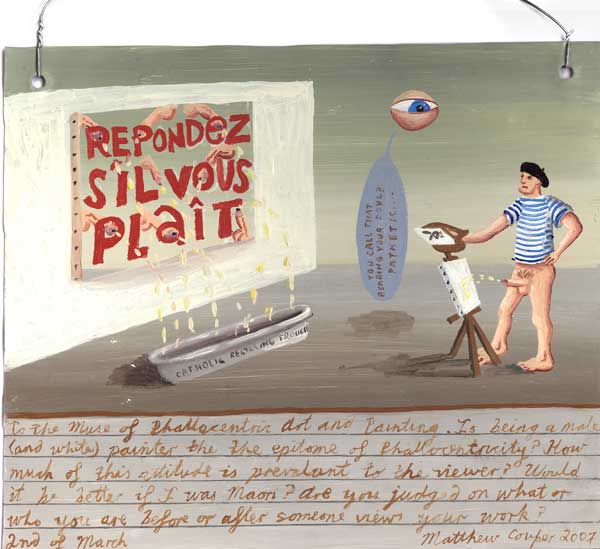 REPONDEZ
S'IL VOUS
PLAÎT
YOU CALL THAT
BEARING YOUR SOUL?
PATHETIC....
CATHOLIC RECYCLING TROUGH
To the Muse of Phallocentric Art and Painting. Is being a male
(and white) painter the the epitome of Phallocentricity? How
much of this attitude is prevalant to the viewer? Would
it be better if I was Maori? Are you judged on what or
who you are before or after someone views your work?
2nd of March
Matthew Couper 2007